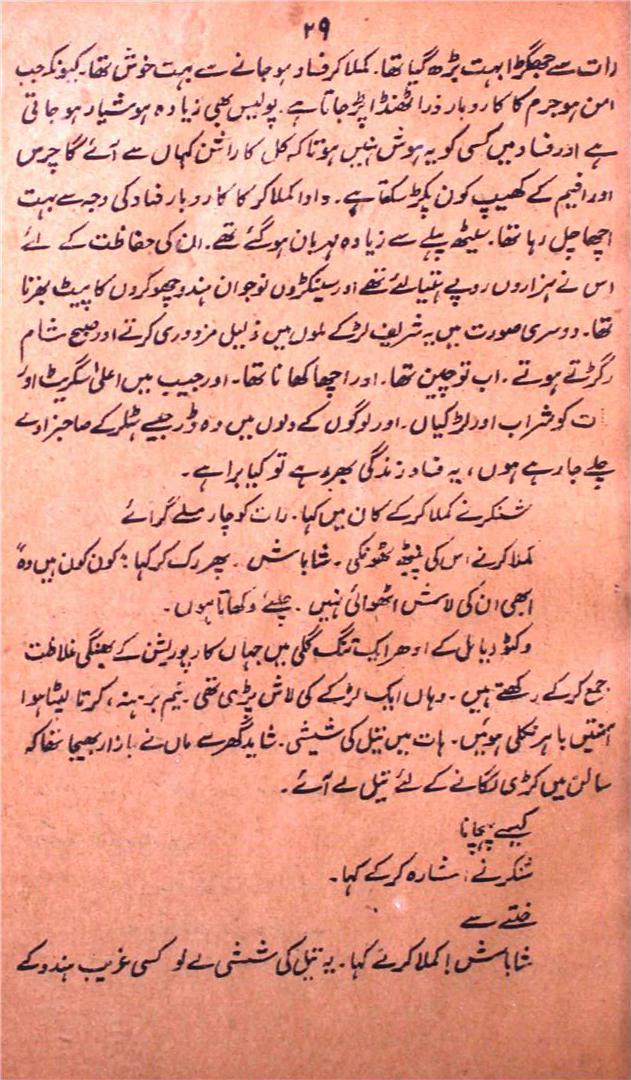 ۲۹
رات سے جھگڑا بہت بڑھ گیا تھا۔ کملاکر فساد ہو جانے سے بہت خوش تھا۔ کیونکہ جب
امن ہو جرم کا کاروبار ذرا ٹھنڈا پڑ جاتا ہے۔ پولیس بھی زیادہ ہوشیار ہو جاتی
ہے اور فساد میں کسی کو یہ ہوش نہیں ہوتا کہ کل کا راشن کہاں سے آئے گا چرس
اور افیم کے کھیپ کون پکڑ سکتا ہے۔ دادا کملاکر کا کاروبار فساد کی وجہ سے بہت
اچھا چل رہا تھا۔ سیٹھ پہلے سے زیادہ مہربان ہو گئے تھے۔ ان کی حفاظت کے لئے
اس نے ہزاروں روپے ہتیا لئے تھے اور سینکڑوں نوجوان ہندو چھوکروں کا پیٹ بھرتا
تھا۔ دوسری صورت میں یہ شریف لڑکے ملوں میں ذلیل مزدوری کرتے اور صبح شام
رگڑتے ہوتے۔ اب تو چین تھا۔ اور اچھا کھانا تھا۔ اور جیب میں اعلیٰ سگریٹ اور
ت کو شراب اور لڑکیاں۔ اور لوگوں کے دلوں میں وہ ڈر جیسے ہٹلر کے صاحبزادے
چلے جا رہے ہوں، یہ فساد زندگی بھر رہے تو کیا برا ہے۔
شنکر نے کملاکر کے کان میں کہا۔ رات کو چار مسلے گرائے
کملاکر نے اس کی پیٹھ ٹھونکی۔ شاباش۔ پھر رک کر کہا: کون کون ہیں وہ"
ابھی ان کی لاش اٹھوائی نہیں۔ چلئے دکھاتا ہوں۔
وکٹوریا مل کے ادھر ایک تنگ گلی میں جہاں کارپوریشن کے بھنگی غلاظت
جمع کر کے رکھتے ہیں۔ وہاں ایک لڑکے کی لاش پڑی تھی۔ نیم برہنہ، کرتا لپٹا ہوا
آنتیں باہر نکلی ہوئیں۔ ہات میں تیل کی شیشی۔ شاید گھر سے ماں نے بازار بھیجا تھا کہ
سالن میں کڑی لگانے کے لئے تیل لے آئے۔
کیسے پہچانا
شنکر نے اشارہ کر کے کہا۔
ختنے سے
شاباش! کملاکر نے کہا۔ یہ تیل کی شیشی لے لو کسی غریب ہندو کے